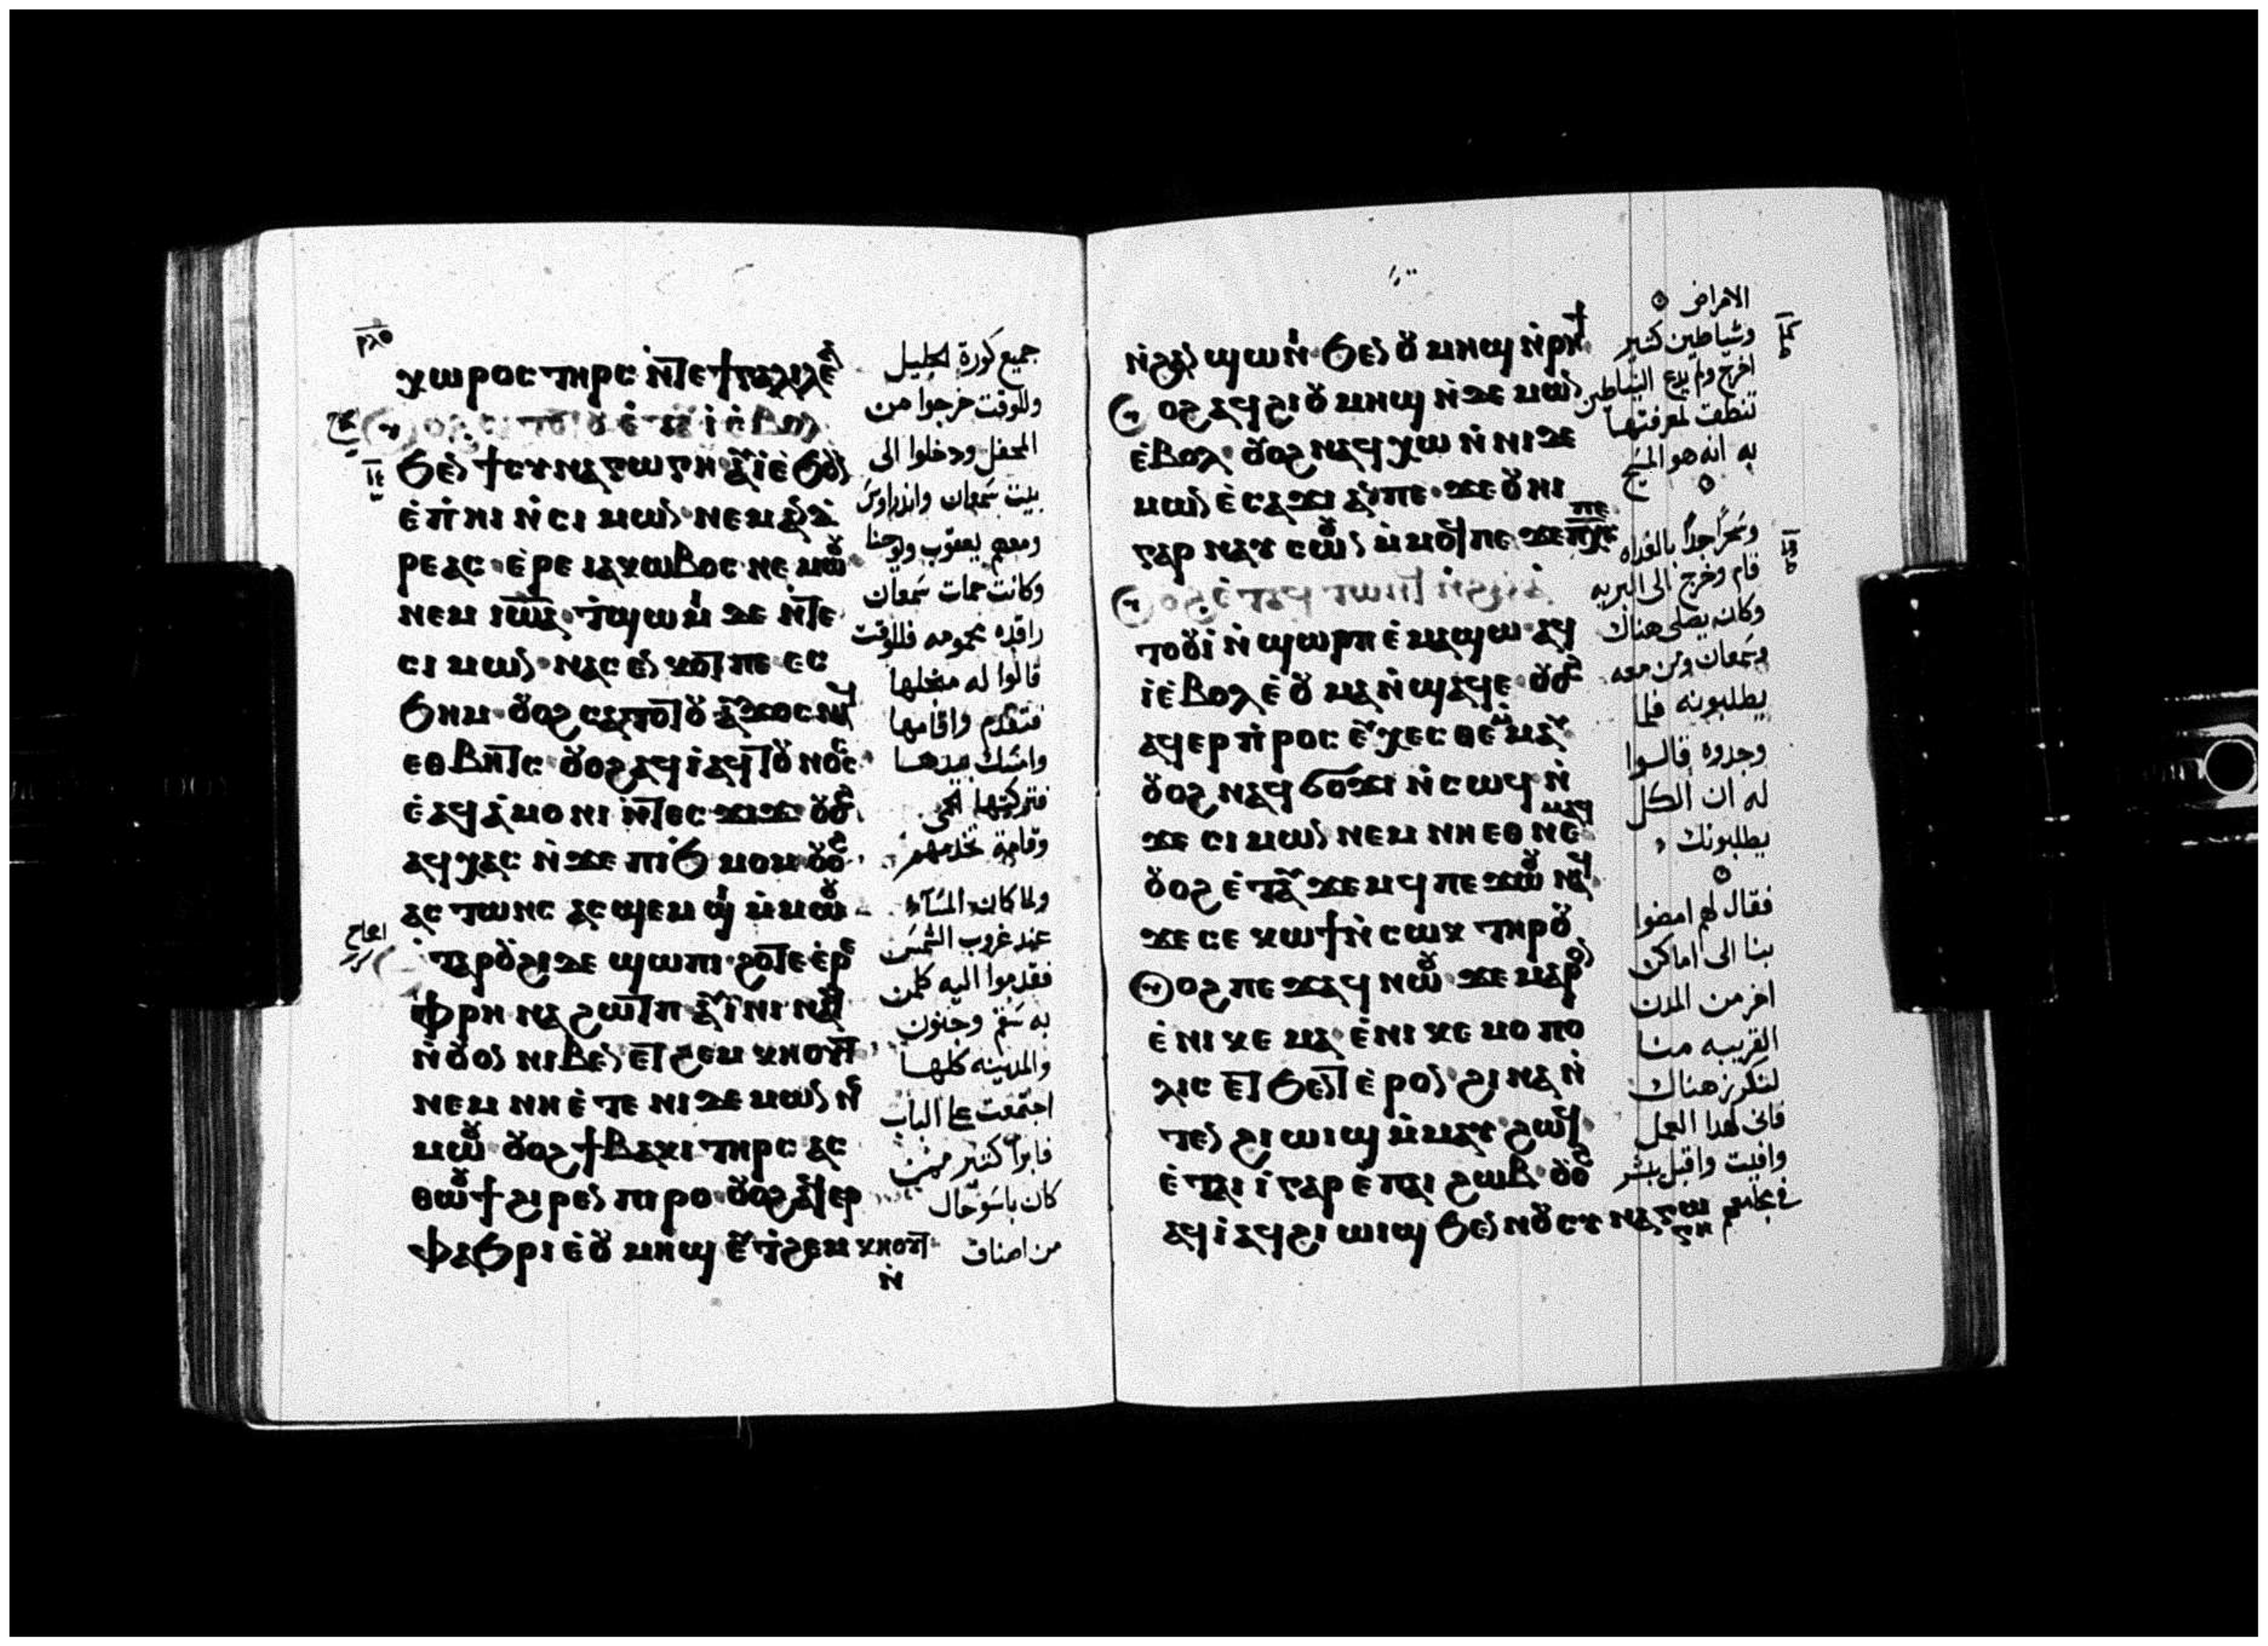 ⲭⲱⲣⲟⲥ ⲧⲏⲣⲥ ⲛ̇ⲧⲉϯⲅⲁⲗⲓⲗⲉⲁ̀
ϧⲉⲛ ϯⲥⲩⲛⲁⲅⲱⲅⲏ ⲁⲩⲓ̀ ⲉ̀ϧⲟⲩⲛ
ⲉ̀ⲡⲏⲓ ⲛ̇ⲥⲓⲙⲱⲛ ⲛⲉⲙ ⲁⲛⲇ
ⲣⲉⲁⲥ ⲉ̀ⲣⲉ ⲓⲁⲕⲱⲃⲟⲥ ⲛⲉⲙⲱⲟⲩ
ⲛⲉⲙ ⲓⲱⲁ ⲧ̇ϣⲱⲙⲓ ⲇⲉ ⲛ̇ⲧⲉ
ⲥⲓⲙⲱⲛ ⲛⲁⲥⲉⲛⲕⲟⲧ ⲡⲉ ⲉⲥ
ϧⲏⲙ ⲟⲩⲟϩ ⲥⲁⲧⲟⲧⲟⲩ ⲁⲩϫⲟⲥ ⲛⲁϥ
ⲉⲑⲃⲏⲧⲥ ⲟⲩⲟϩ ⲁϥⲓ̀ ⲁϥⲧⲟⲩⲛⲟⲥ
ⲉ̀ⲁϥⲁ̀ⲙⲟⲛⲓ ⲛ̇ⲧⲉⲥϫⲓϫ ⲟⲩⲟϩ
ⲁϥⲭⲁⲥ ⲛ̇ϫⲉ ⲡⲓϧⲙⲟⲙ ⲟⲩⲟϩ
ⲁⲥⲧⲱⲛⲥ ⲁⲥϣⲉⲙϣⲓ ⲙ̇ⲙⲱⲟⲩ
ⲧⲁⲣⲟⲩϩⲓ ⲇⲉ ϣⲱⲡⲓ ϩⲟⲧⲉ ⲉ̀ⲣⲉ
ⲫⲣⲏ ⲛⲁϩⲱⲧⲡ ⲁⲩⲓ̀ⲛⲓ ⲛⲁϥ
ⲛ̇ⲟⲩⲟⲛ ⲛⲓⲃⲉⲛ ⲉⲧϩⲉⲙⲕⲏⲟⲩⲧ
ⲛⲉⲙ ⲛⲏ ⲉ̀ⲧⲉ ⲛⲓⲇⲉⲙⲱⲛ ⲛⲉ
ⲙⲱⲟⲩ ⲟⲩⲟϩ ϯⲃⲁⲕⲓ ⲧⲏⲣⲥ ⲁⲥ
ⲑⲱⲟⲩϯ ϩⲓⲣⲉⲛ ⲡⲓⲣⲟ ⲟⲩⲟϩ ⲁϥⲉⲣ
ⲫⲁϧⲣⲓ ⲉ̀ⲟⲩⲙⲏϣ ⲉⲩⲧ̇ϩⲉⲙⲕⲏⲟⲩⲧ
ⲛ̇
جميع كورة الجليل
وللوقت خرجوا من
المحفل ودخلوا الى
بيت سمعان واندراوس
ومعهم يعقوب ويوحنا
وكانت حمات سمعان
راقده محمومه فللوقت
قالوا له من اجلها
فتقدم واقامها
وامسك بيدها
فتركتها الحمى
وقامت تخدمهم
ولما كان المساء
عند غروب الشمس
فقدموا اليه كلمن
به سقم وجنون
والمدينه كلها
اجتمعت على الباب
فابرا كثير ممن
كان باسو حال
من اصناف
ⲛ̇ϩⲁⲛϣⲱⲛⲓ ϧⲉⲛ ⲟⲩⲙⲏϣ ⲛ̇ⲣⲏϯ
ⲟⲩⲟϩ ⲁϥϩⲓ ⲟⲩⲙⲏϣ ⲛ̇ⲇⲉⲙⲱⲛ
ⲉ̀ⲃⲟⲗ ⲟⲩⲟϩ ⲛⲁϥⲭⲱ ⲛ̇ⲛⲓⲇⲉ
ⲙⲱⲛ ⲉ̀ⲥⲁϫⲓ ⲁⲛ ⲡⲉ ϫⲉ ⲟⲩⲏⲓ
ⲅⲁⲣ ⲛⲁⲩⲥⲱⲟⲩⲛ ⲙ̇ⲙⲟϥ ⲡⲉ ϫⲉ ⲡⲭⲥ ⲡⲉ
ⲟⲩⲟϩ ⲉ̀ⲧⲁϥⲧⲱⲛϥ ⲛ̇ϩⲁⲛⲁ̀
ⲧⲟⲟⲩⲓ̀ ⲛ̇ϣⲱⲣⲡ ⲉ̀ⲙⲁϣⲱ ⲁϥ
ⲓ̀ ⲉ̀ⲃⲟⲗ ⲉ̀ⲟⲩⲙⲁ ⲛ̇ϣⲁϥⲉ ⲟⲩⲟϩ
ⲁϥⲉⲣⲡ̇ⲣⲟⲥⲉⲩⲭⲉⲥⲑⲉ ⲙ̇ⲙⲁⲩ
ⲟⲩⲟϩ ⲛⲁϥϭⲟϫⲓ ⲛ̇ⲥⲱϥ ⲛ̇
ϫⲉ ⲥⲓⲙⲱⲛ ⲛⲉⲙ ⲛⲏ ⲉⲑⲛⲉⲙⲁϥ
ⲟⲩⲟϩ ⲉ̀ⲧⲁⲩϫⲉⲙϥ ⲡⲉϫⲱⲟⲩ ⲛⲁϥ
ϫⲉ ⲥⲉⲕⲱϯ ⲛ̇ⲥⲱⲕ ⲧⲏⲣⲟⲩ
ⲟⲩⲟϩ ⲡⲉϫⲁϥ ⲛⲱⲟⲩ ϫⲉ ⲙⲁⲣⲟⲛ
ⲉ̀ⲛⲓⲕⲉⲙⲁ ⲉ̀ⲛⲓⲕⲉⲙⲟⲡⲟ
ⲗⲓⲥ ⲉⲧϧⲉⲛⲧ ⲉ̀ⲣⲟⲛ ϩⲓⲛⲁ ⲛ̇
ⲧⲉⲛϩⲓⲱⲓϣ ⲙ̇ⲙⲁⲩ ϩⲱϥ
ⲉ̀ⲧⲁⲓⲓ̀ ⲅⲁⲣ ⲉ̀ⲡⲁⲓϩⲱⲃ ⲟⲩⲟϩ
ⲁϥⲓ̀ ⲁϥϩⲓⲱⲓϣ ϧⲉⲛ ⲛⲟⲩⲥⲩⲛⲁⲅⲱ
ⲅⲏ
الامراض
وشياطين كثير
اخرج ولم يدع الشياطين
تنطق لمعرفتها
به انه هو المسيح
وسحرا جدا بالغداه
قام وخرج الى البريه
وكان يصلي هناك
وسمعان ومن معه
يطلبونه فلما
وجدوه قالوا
له ان الكل
يطلبونك
فقال لهم امضوا
بنا الى اماكن
اخر من المدن
القريبه منا
لنكرز هناك
فاني لهذا العمل
وافيت واقبل يبشر
في مجامعهم